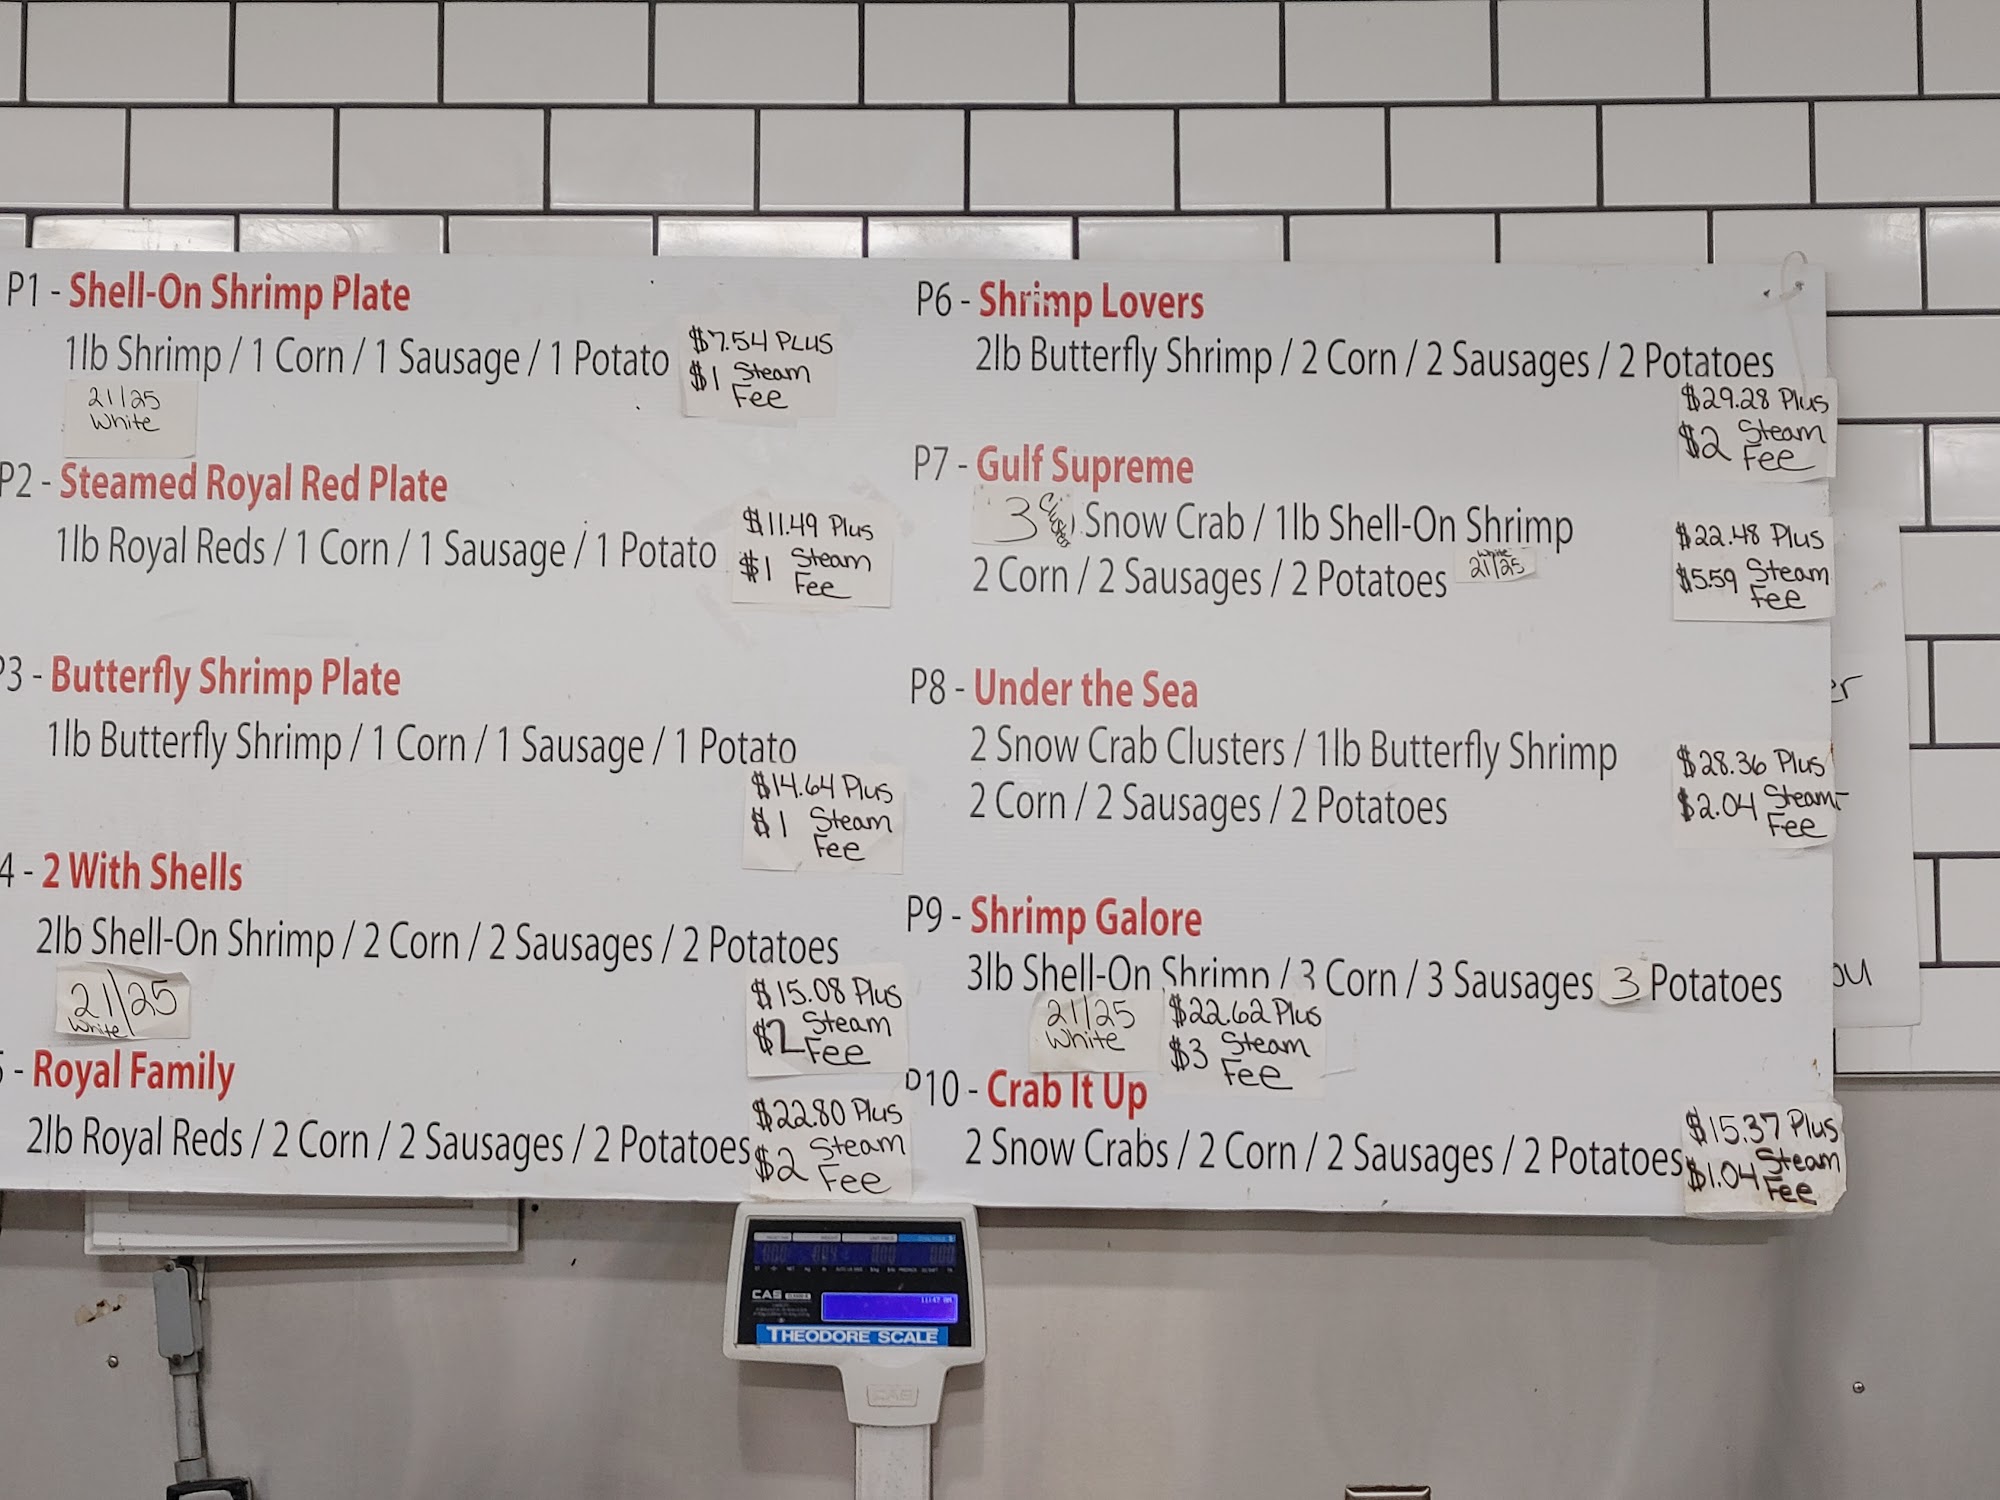 P1 - Shell-On Shrimp Plate
1lb Shrimp / 1 Corn / 1 Sausage / 1 Potato
$7.54 PLUS
$1 Steam
Fee
21/25
White
P2 - Steamed Royal Red Plate
1lb Royal Reds / 1 Corn / 1 Sausage / 1 Potato
$11.49 Plus
$1 Steam
Fee
3 - Butterfly Shrimp Plate
1lb Butterfly Shrimp / 1 Corn / 1 Sausage / 1 Potato
$14.64 Plus
$1 Steam
Fee
4 - 2 With Shells
2lb Shell-On Shrimp / 2 Corn / 2 Sausages / 2 Potatoes
21/25
White
$15.08 Plus
$2 Steam
Fee
- Royal Family
2lb Royal Reds / 2 Corn / 2 Sausages / 2 Potatoes
$22.80 Plus
$2 Steam
Fee
P6 - Shrimp Lovers
2lb Butterfly Shrimp / 2 Corn / 2 Sausages / 2 Potatoes
$29.28 Plus
$2 Steam
Fee
P7 - Gulf Supreme
3 Snow Crab / 1lb Shell-On Shrimp
2 Corn / 2 Sausages / 2 Potatoes
White
21/25
$22.48 Plus
$5.59 Steam
Fee
P8 - Under the Sea
2 Snow Crab Clusters / 1lb Butterfly Shrimp
2 Corn / 2 Sausages / 2 Potatoes
$28.36 Plus
$2.04 Steam
Fee
P9 - Shrimp Galore
3lb Shell-On Shrimp / 3 Corn / 3 Sausages 3 Potatoes
21/25
White
$22.62 Plus
$3 Steam
Fee
P10 - Crab It Up
2 Snow Crabs / 2 Corn / 2 Sausages / 2 Potatoes
$15.37 Plus
$1.04 Steam
Fee
er
ou
CAS
THEODORE SCALE
CAS